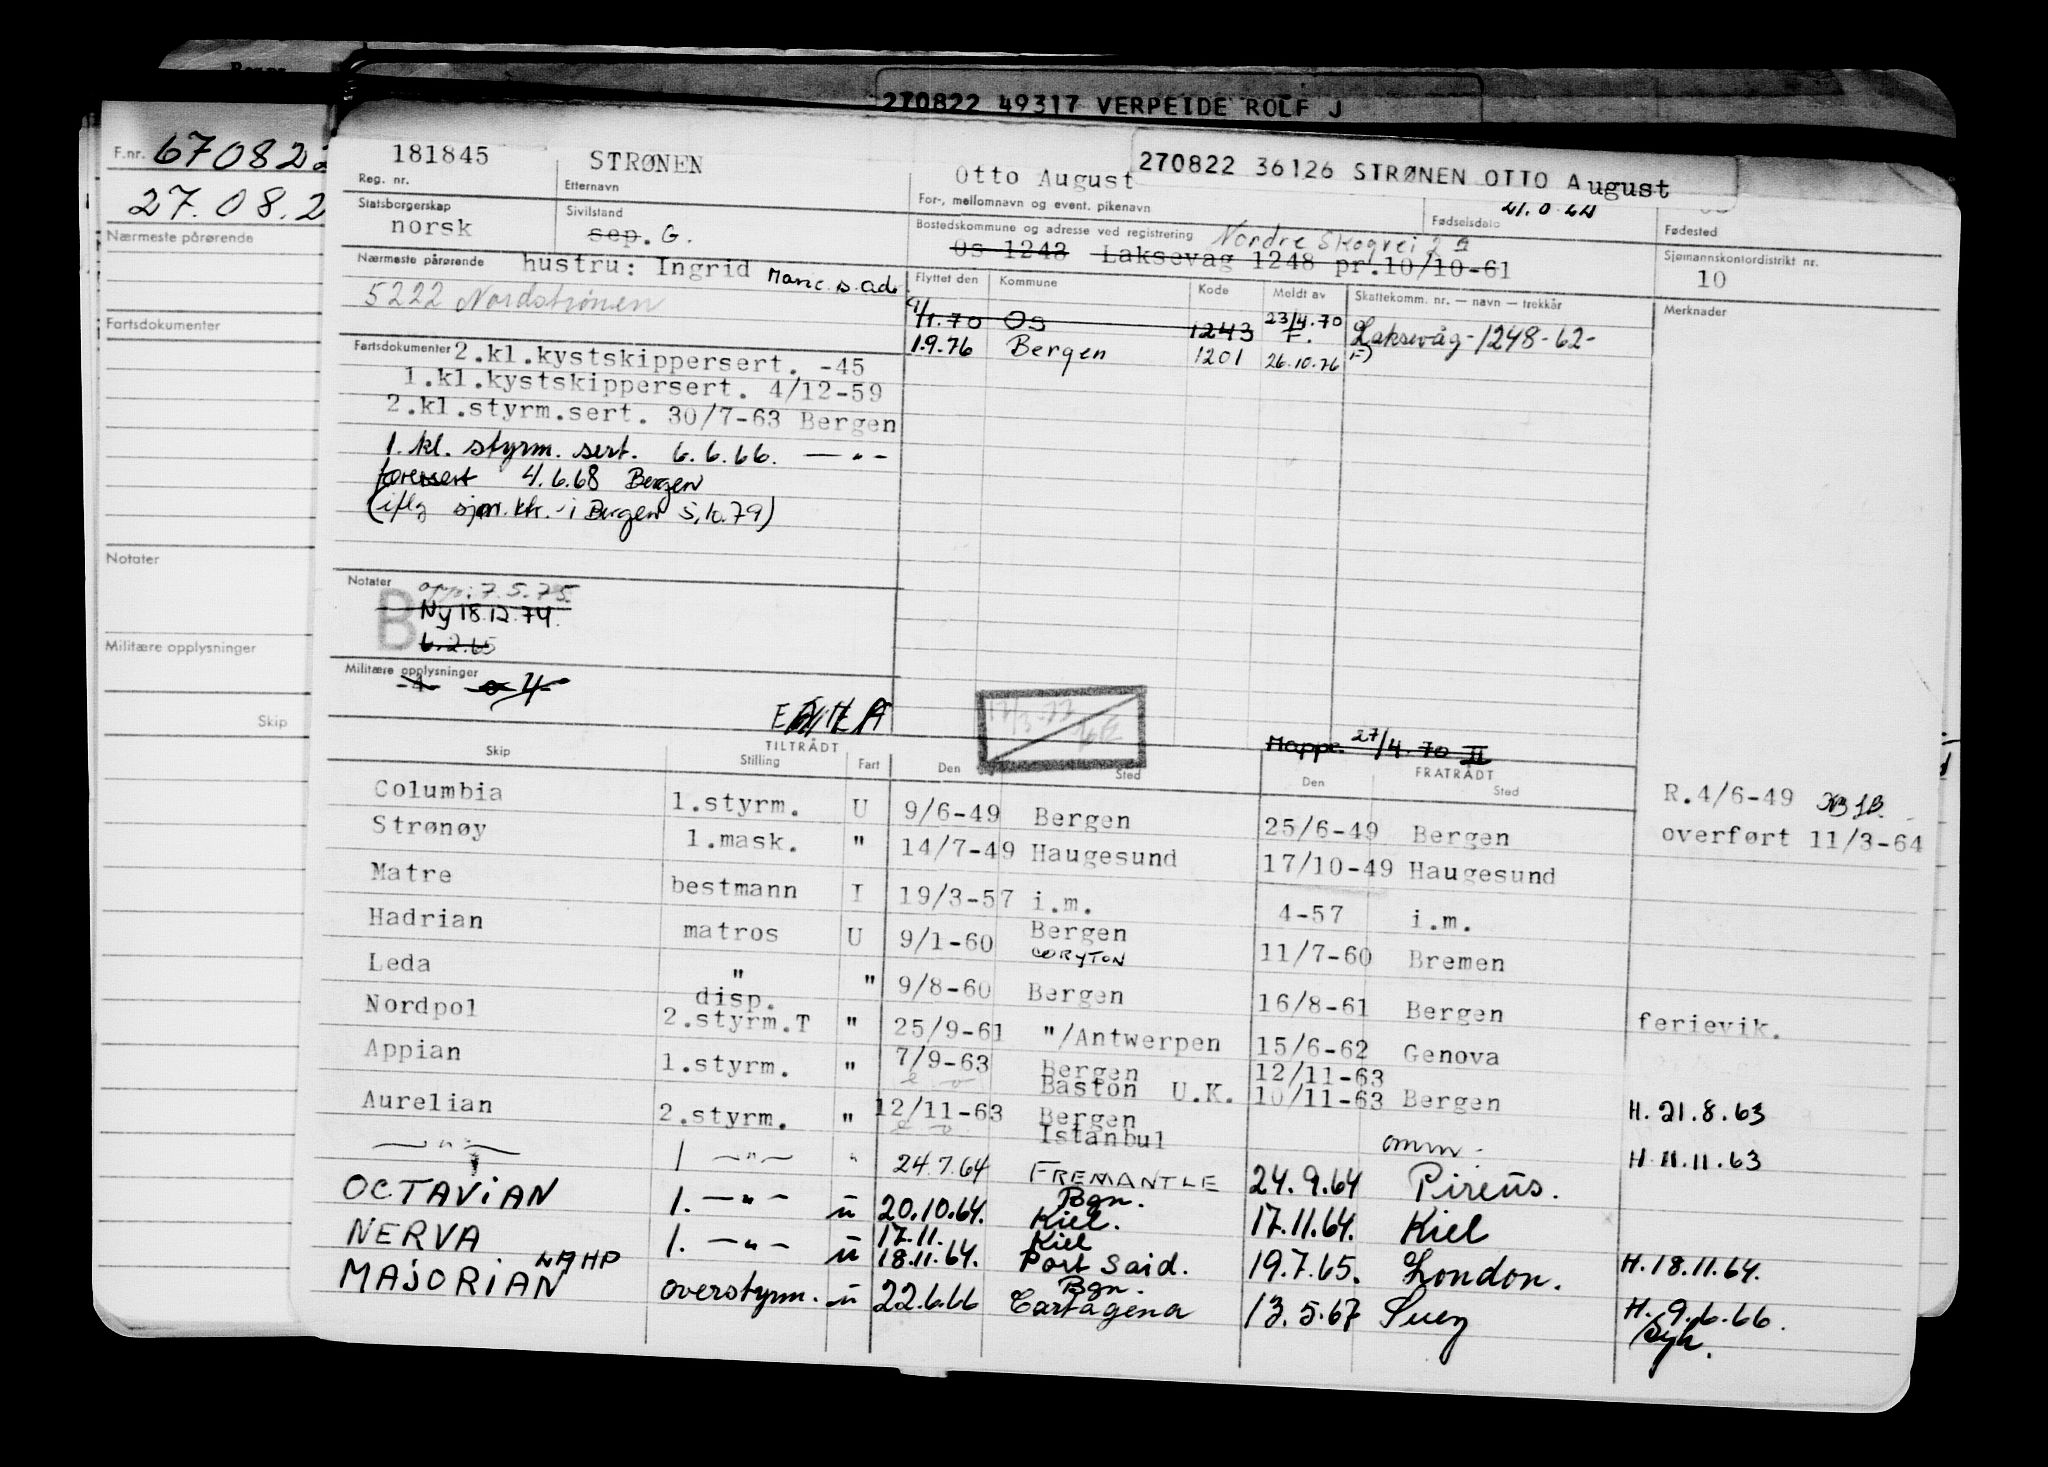 270822 49317 VERPEIDE ROLF J
F.nr. 670822
27.08.2
Nærmeste pårørende
Fartsdokumenter
Notater
Militære opplysninger
Skip
181845 STRØNEN Otto August 270822 36126 STRØNEN OTTO August
Reg. nr. Etternavn For-, mellomnavn og event. pikenavn Fødselsdato Fødested
Statsborgerskap Sivilstand Bostedskommune og adresse ved registrering Nordre Skogvei 2 A Sjømannskontordistrikt nr.
norsk sep. G. Os 1243 Laksevåg 1248 pr.10/10-61 10
Nærmeste pårørende hustru: Ingrid Marie s. adr.
5222 Nordstrønen
Flyttet den Kommune Kode Meldt av Skattekomm. nr. — navn — trekkår Merknader
1/1.70 Os 1243 23/4.70 F. Laksevåg-1248-62-
1.9.76 Bergen 1201 26.10.76
Fartsdokumenter 2.kl.kystskippersert. -45
1.kl.kystskippersert. 4/12-59
2.kl.styrm.sert. 30/7-63 Bergen
1. kl. styrm. sert. 6.6.66. — " —
førersert 4.6.68 Bergen
(iflg sjm.ktr. i Bergen 5.10.79)
Notater opp: 7.5.75.
B Ny 18.12.74.
6.2.65
Militære opplysninger
Mappe 27/4.70 II
TILTRÅDT FRATRÅDT
Skip Stilling Fart Den Sted Den Sted
Columbia 1.styrm. U 9/6-49 Bergen 25/6-49 Bergen R.4/6-49
Strønøy 1.mask. " 14/7-49 Haugesund 17/10-49 Haugesund overført 11/3-64
Matre bestmann I 19/3-57 i.m. 4-57 i.m.
Hadrian matros U 9/1-60 Bergen CORYTON 11/7-60 Bremen
Leda " " 9/8-60 Bergen 16/8-61 Bergen ferievik.
Nordpol disp. 2.styrm.T " 25/9-61 "/Antwerpen 15/6-62 Genova
Appian 1.styrm. " 7/9-63 Bergen Baston U.K. 12/11-63 10/11-63 Bergen H. 21.8.63
Aurelian 2.styrm. " 12/11-63 Bergen Istanbul omm. H. 11.11.63
— " — 1 — " — " 24.7.64 FREMANTLE 24.9.64 Pireüs.
OCTAVIAN 1. — " — u 20.10.64. Bgn. Kiel. 17.11.64. Kiel
NERVA 1. — " — u 17.11. 18.11.64. Kiel Port Said. 19.7.65. London. H. 18.11.64.
MAJORIAN LAHP overstyrm. u 22.6.66 Bgn. Cartagena 13.5.67 Suez H. 9.6.66.
Syk.